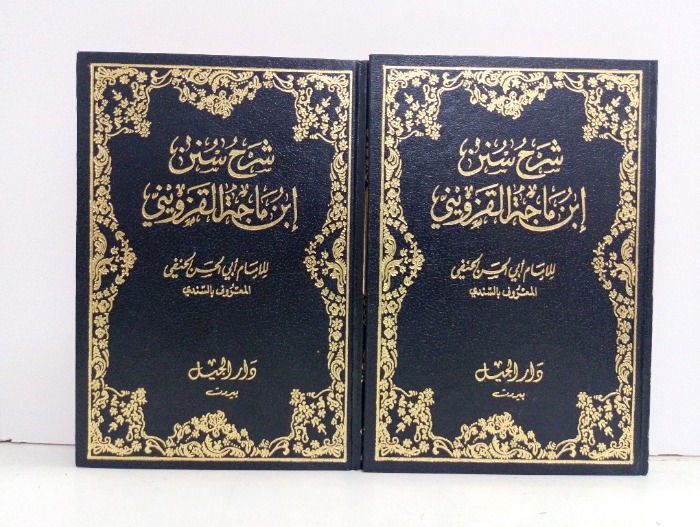 شرح سنن
ابن ماجة القزويني
للإمام أبي الحسن الحنفي
المعروف بالسندي
دار الجيل
بيروت
شرح سنن
ابن ماجة القزويني
للإمام أبي الحسن الحنفي
المعروف بالسندي
دار الجيل
بيروت